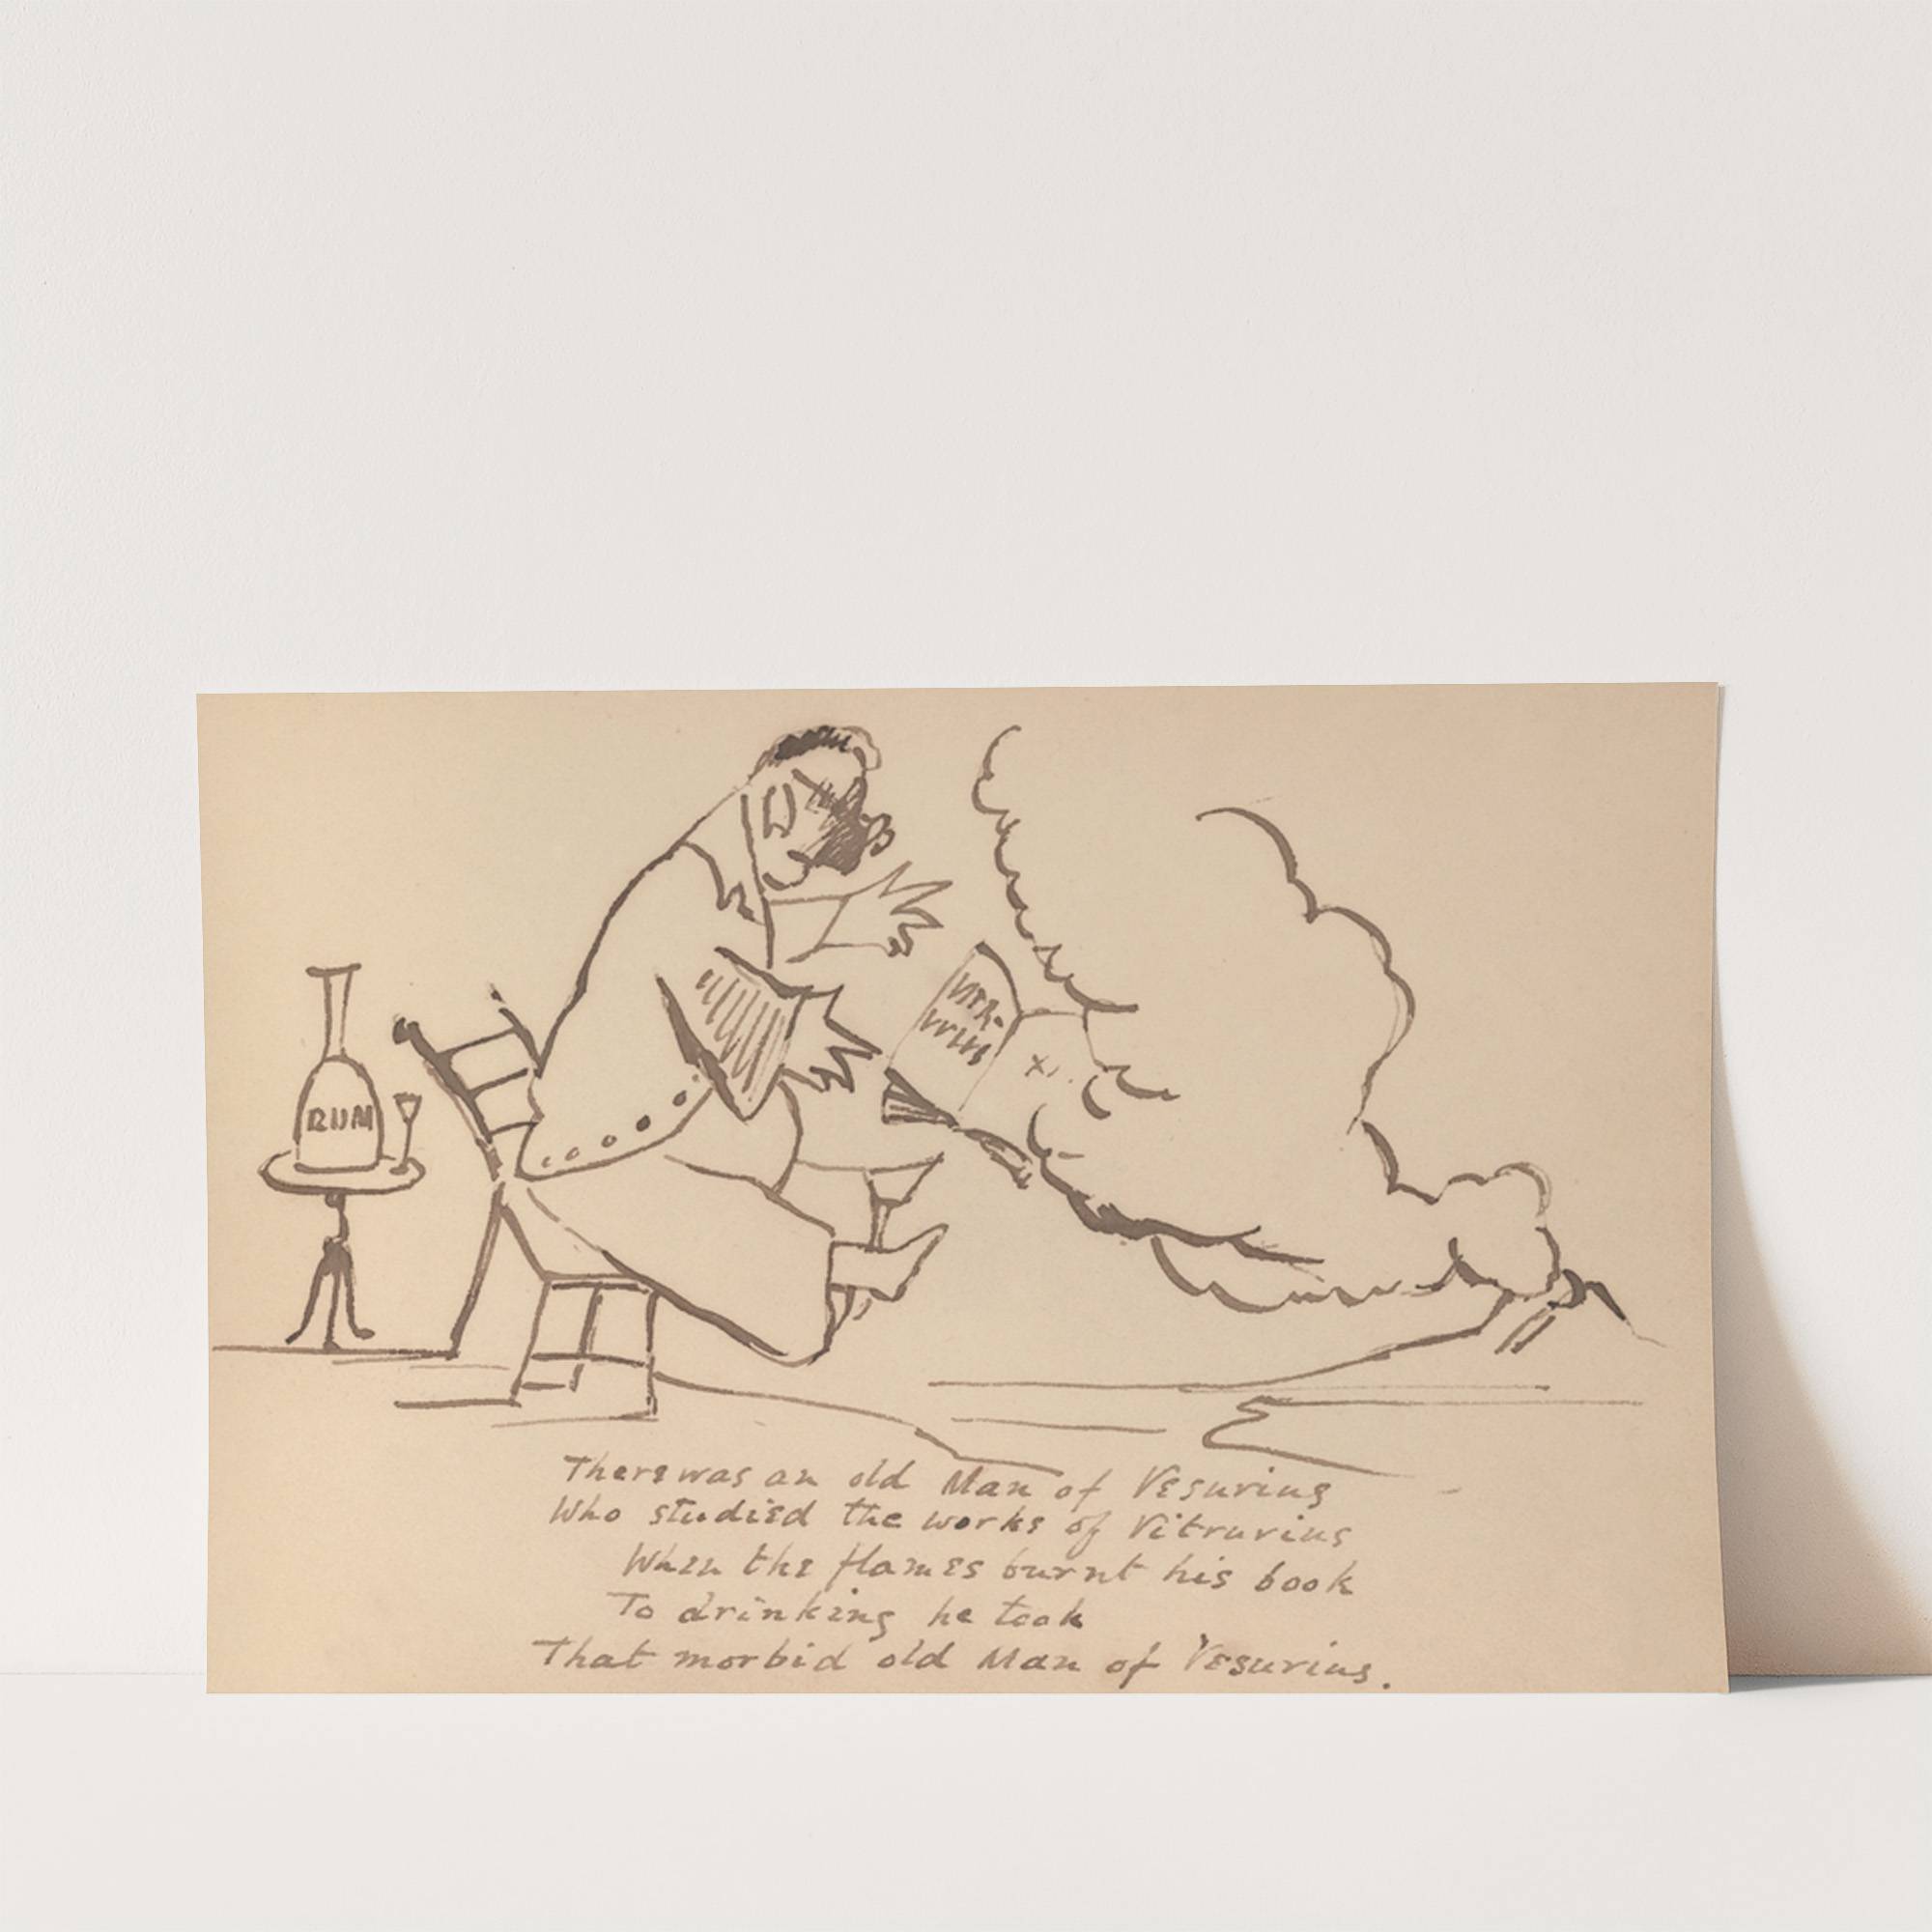 RUM
VITR-
VVIVS
There was an old Man of Vesuvius
Who studied the works of Vitruvius
When the flames burnt his book
To drinking he took
That morbid old Man of Vesuvius.